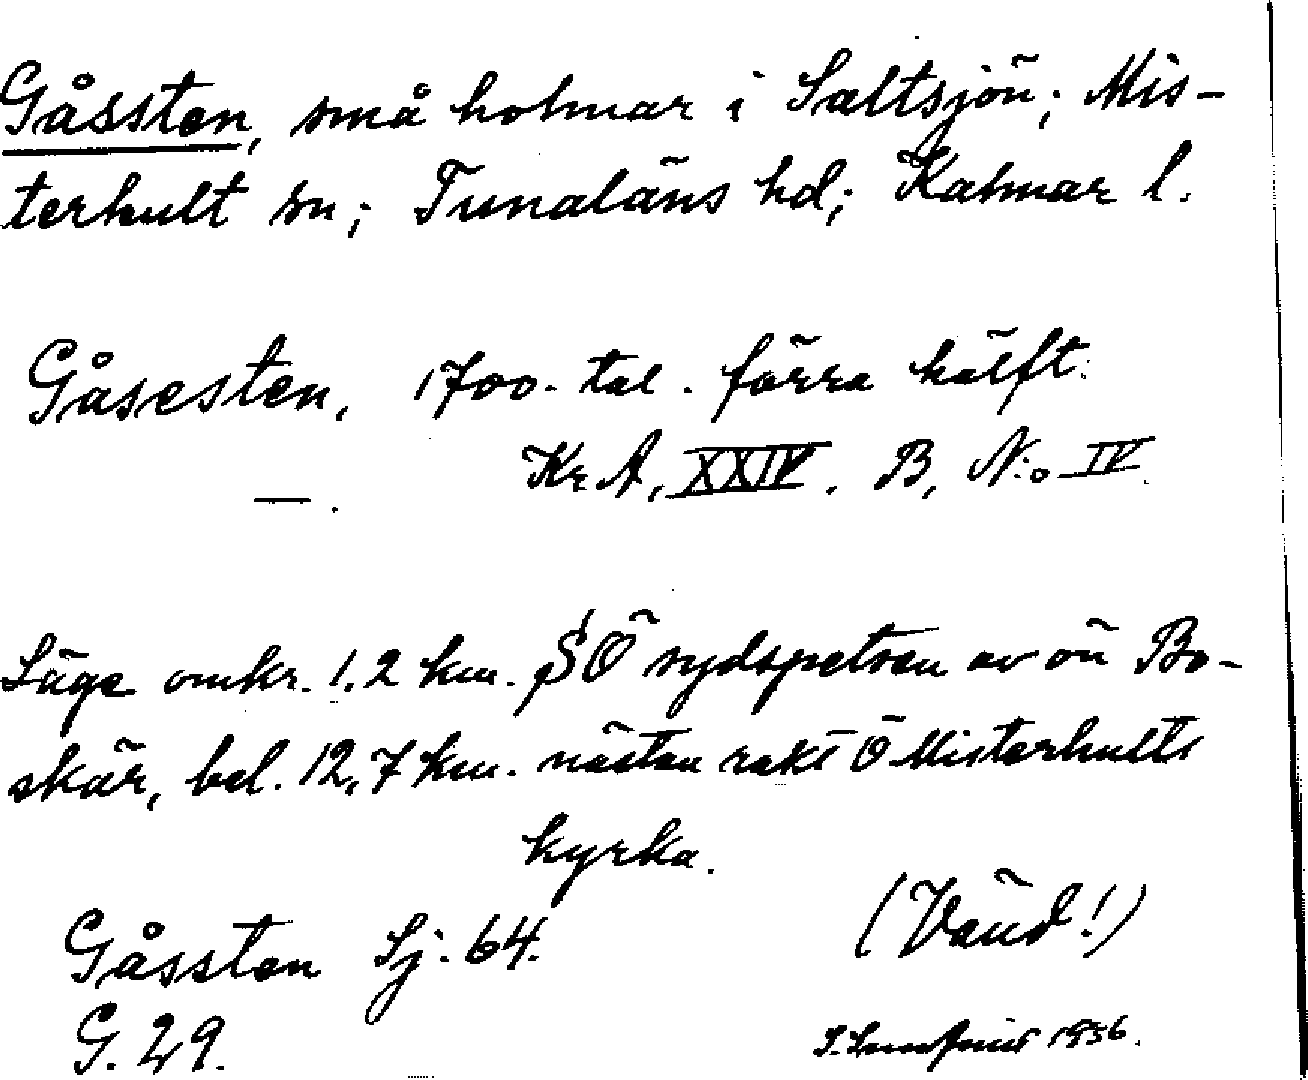 Gåssten, små holmar i Saltsjön; Mis-
terhult sn; Tunaläns hd; Kalmar l.
Gåsesten, 1700-tal. förra hälft.
Kr. A, XXIV. B, N:o IV
— .
Läge omkr. 1.2 km. SÖ sydspetsen av ön Bo-
skär, bel. 12,7 km. nästan rakt Ö Misterhults
kyrka.
(Vänd!)
Gåssten Sj. 64.
G. 29.
1936.